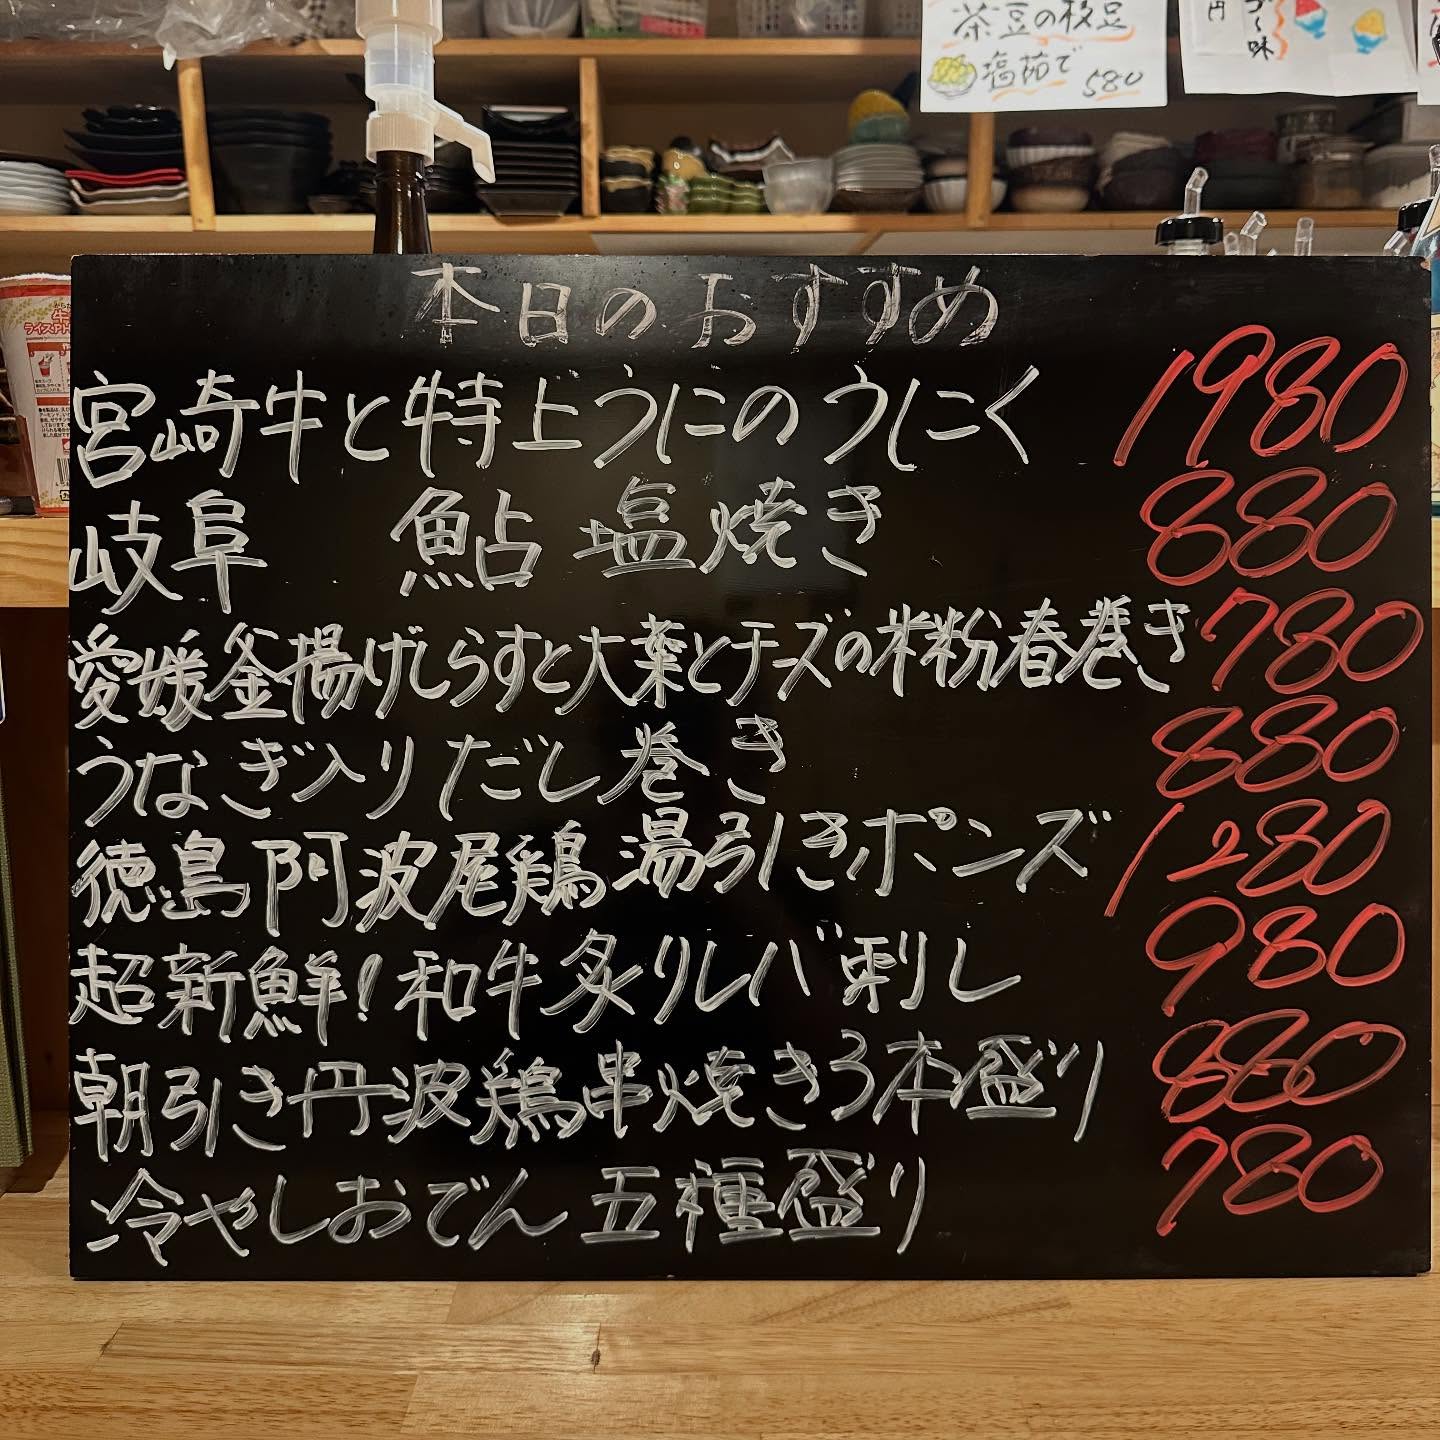 茶豆の枝豆
塩茹で 580
円
味
本日のおすすめ
宮崎牛と特上うにのうにく 1980
岐阜 鮎 塩焼き 880
愛媛釜揚げしらすと大葉とチーズの米粉春巻き 780
うなぎ入りだし巻き 880
徳島阿波尾鶏湯引きポンズ 1280
超新鮮!和牛炙りレバ刺し 980
朝引き丹波鶏串焼き3本盛り 880
冷やしおでん 五種盛り 780